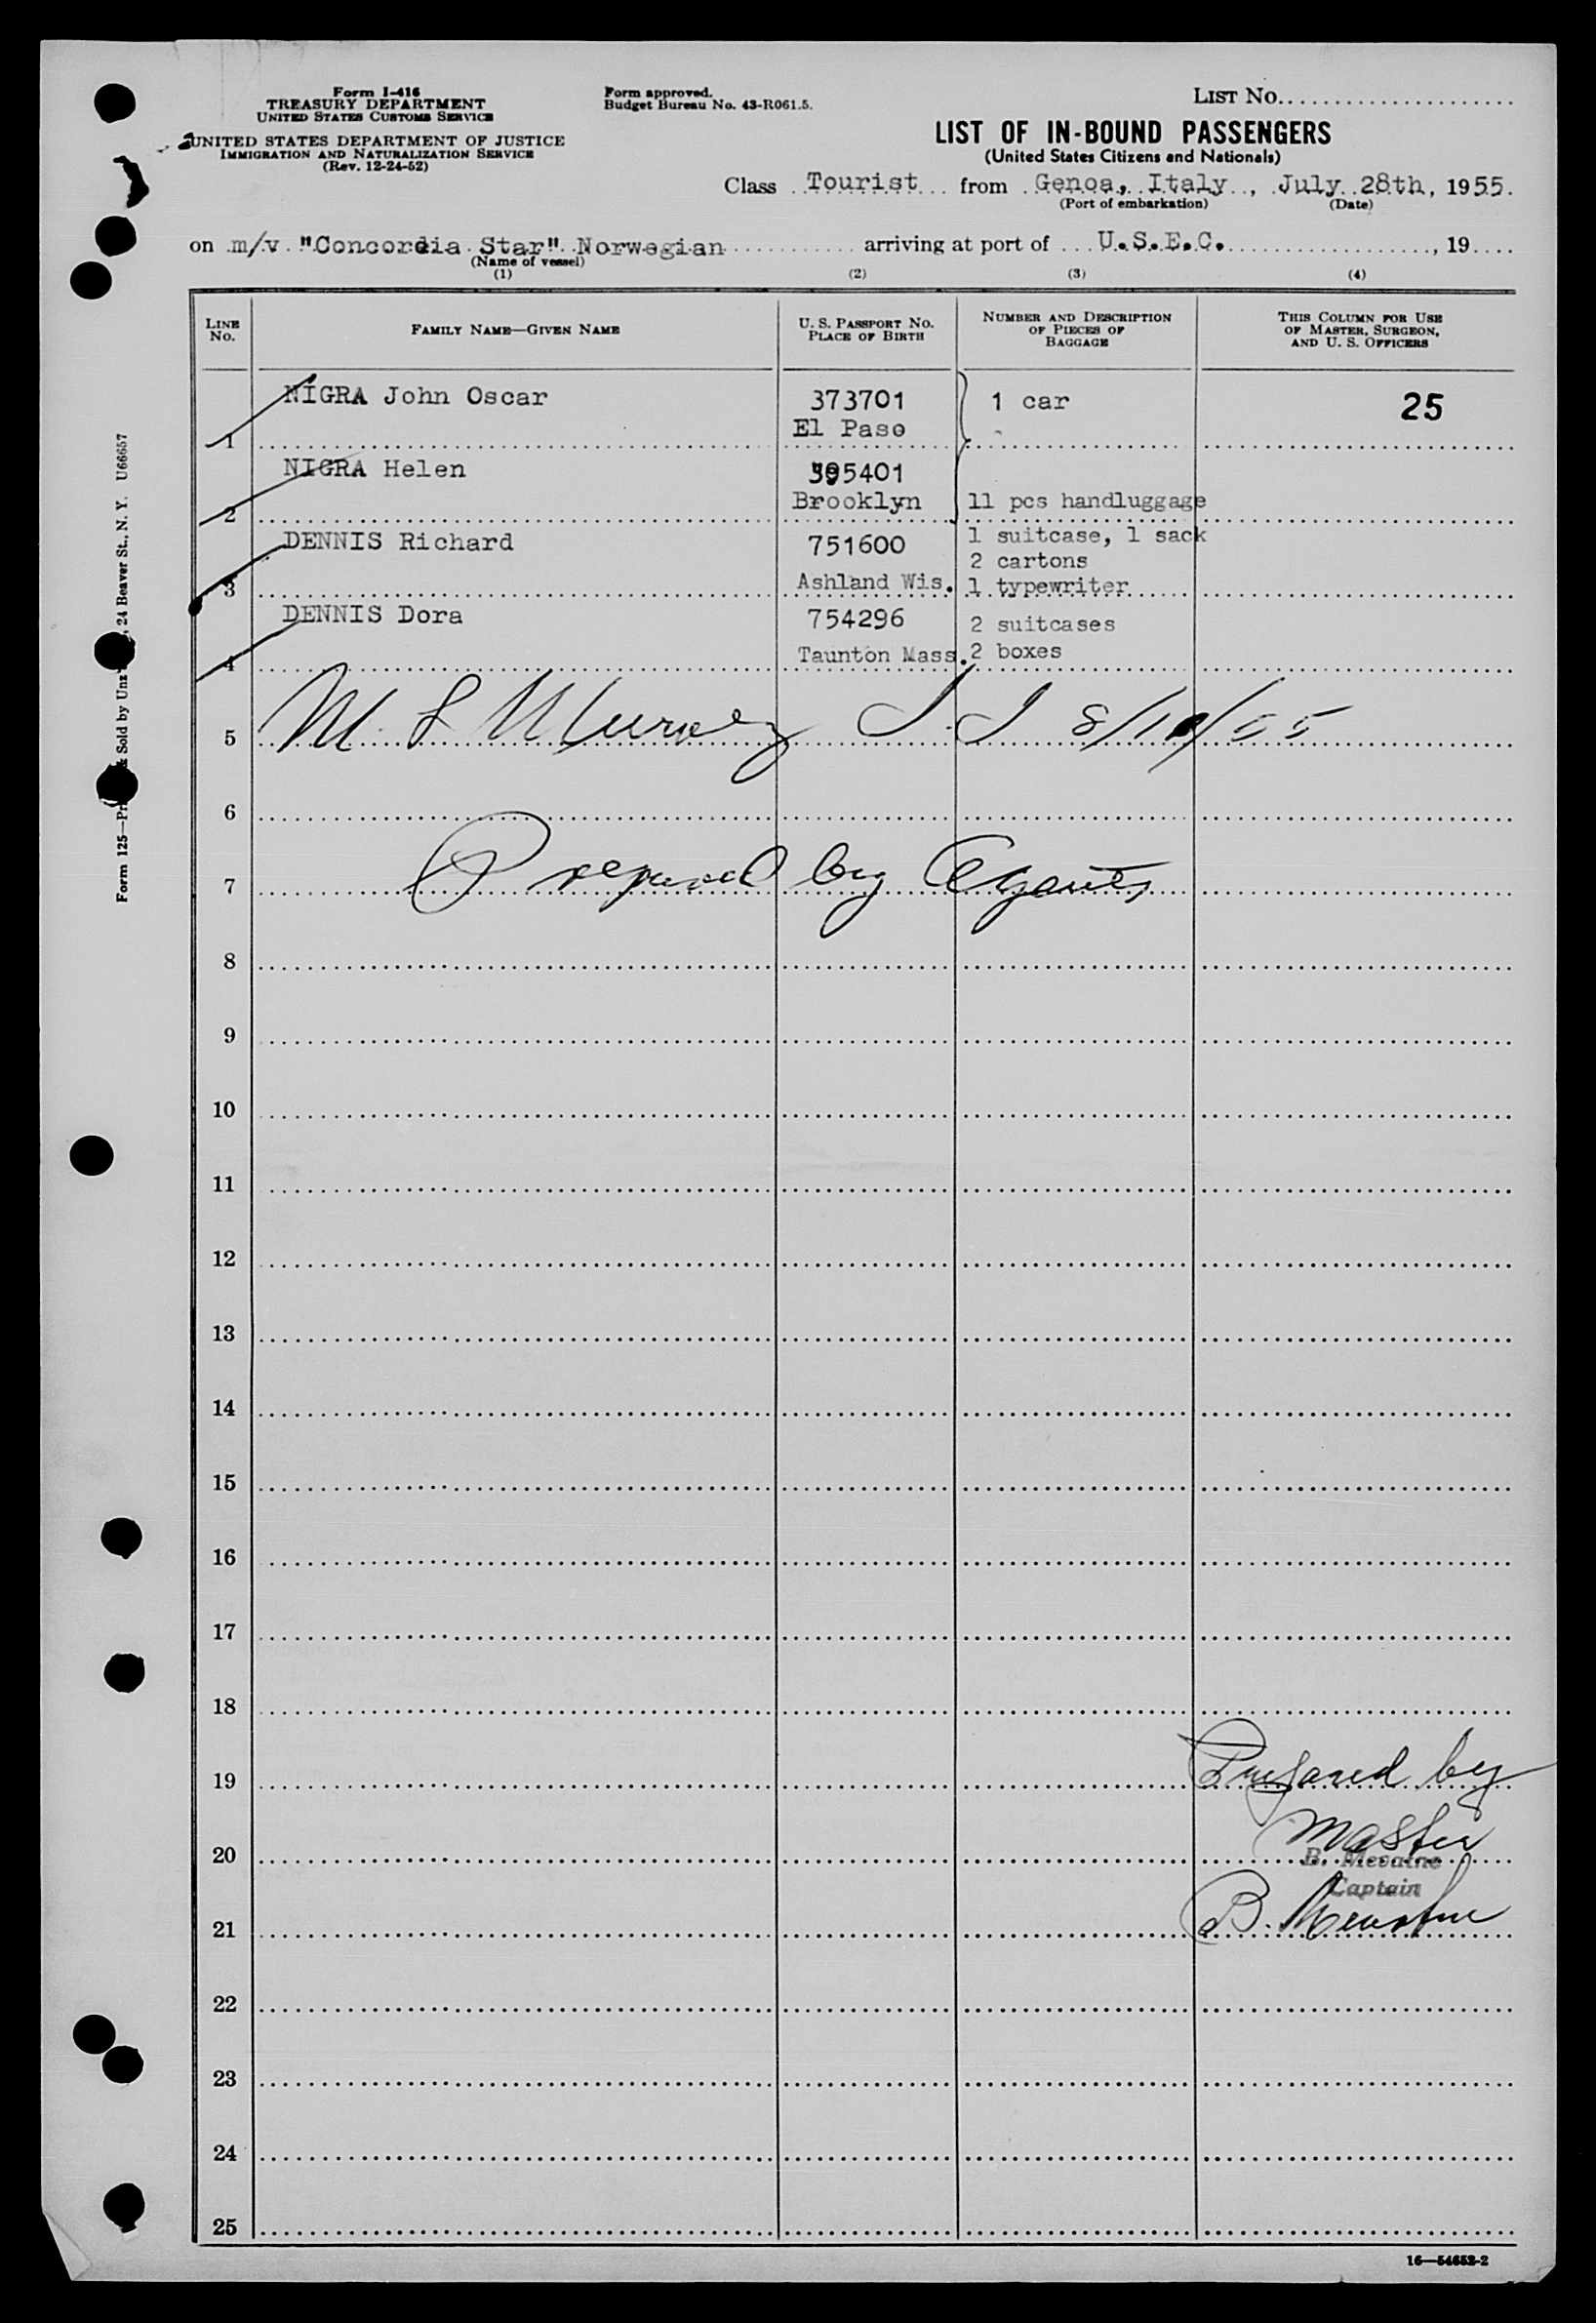 Form I-416
TREASURY DEPARTMENT
UNITED STATES CUSTOMS SERVICE
UNITED STATES DEPARTMENT OF JUSTICE
IMMIGRATION AND NATURALIZATION SERVICE
(Rev. 12-24-52)
Form approved.
Budget Bureau No. 43-R061.5.
LIST NO.
LIST OF IN-BOUND PASSENGERS
(United States Citizens and Nationals)
Class Tourist from Genoa, Italy, July 28th, 1955.
(Port of embarkation) (Date)
on m/v "Concordia Star" Norwegian arriving at port of U.S.E.C., 19
(Name of vessel)
(1) (2) (3) (4)
LINE NO.
FAMILY NAME—GIVEN NAME
U. S. PASSPORT NO.
PLACE OF BIRTH
NUMBER AND DESCRIPTION
OF PIECES OF
BAGGAGE
THIS COLUMN FOR USE
OF MASTER, SURGEON,
AND U. S. OFFICERS
NIGRA John Oscar 373701 1 car 25
1 El Paso
NIGRA Helen 395401
2 Brooklyn 11 pcs handluggage
DENNIS Richard 751600 1 suitcase, 1 sack
2 cartons
3 Ashland Wis. 1 typewriter
DENNIS Dora 754296 2 suitcases
4 Taunton Mass. 2 boxes
5 M. L. 8/10/55
6
7 Prepared by Agents
8
9
10
11
12
13
14
15
16
17
18
19 Prepared by
Master
20 B. Mevatne
Captain
21 B. Mevatne
22
23
24
25
16—54652-2
Form 125—Pr & Sold by Unz , 24 Beaver St., N. Y. U66657